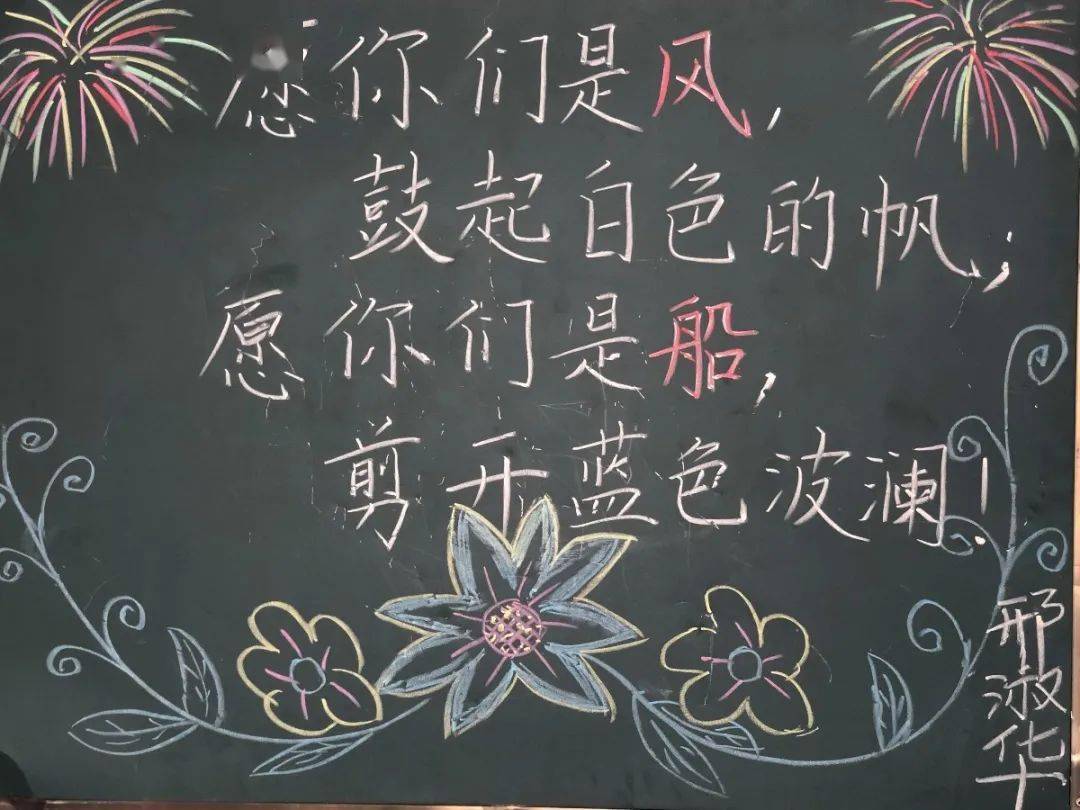 愿你们是风,
鼓起白色的帆;
愿你们是船,
剪开蓝色波澜!
邢淑华